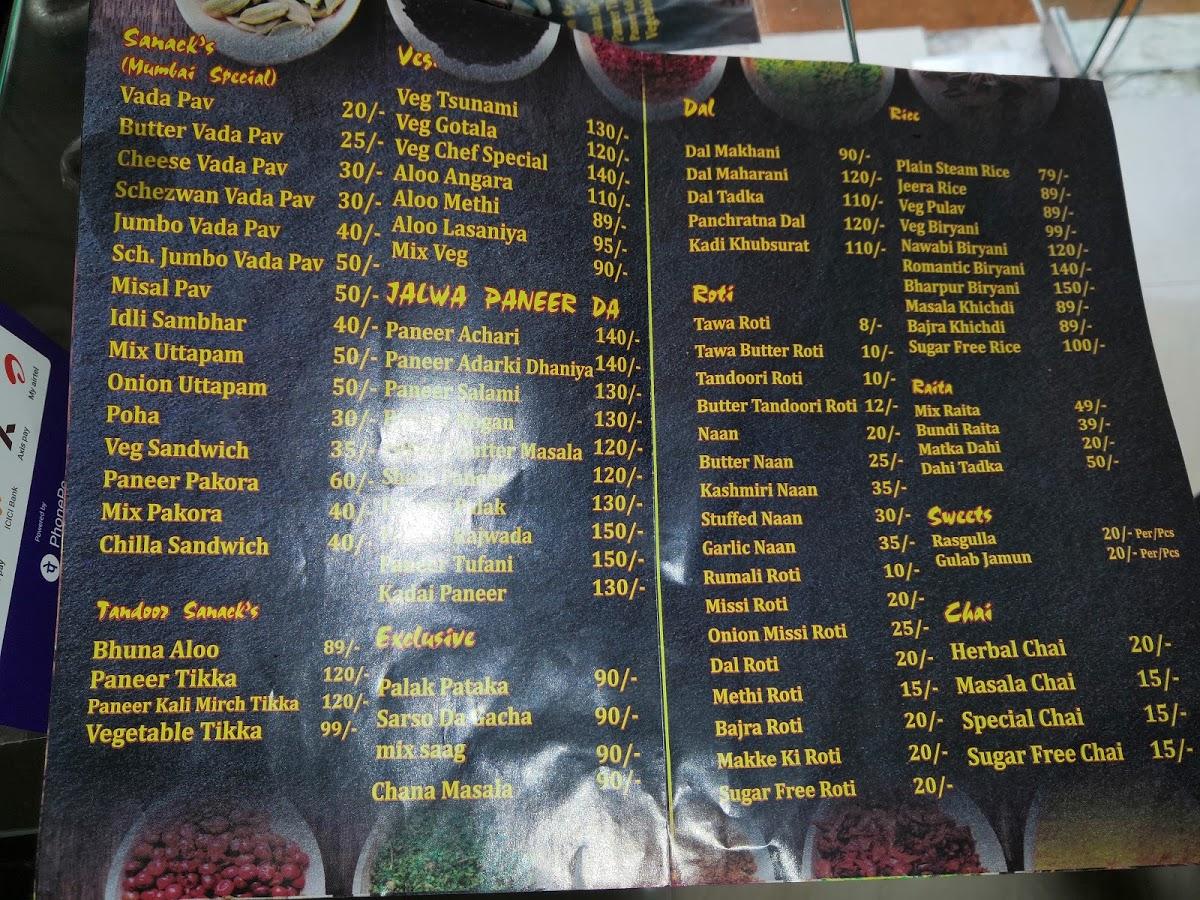 Sanack's
(Mumbai Special)
Vada Pav 20/-
Butter Vada Pav 25/-
Cheese Vada Pav 30/-
Schezwan Vada Pav 30/-
Jumbo Vada Pav 40/-
Sch. Jumbo Vada Pav 50/-
Misal Pav 50/-
Idli Sambhar 40/-
Mix Uttapam 50/-
Onion Uttapam 50/-
Poha 30/-
Veg Sandwich 35/-
Paneer Pakora 60/-
Mix Pakora 40/-
Chilla Sandwich 40/-
Tandoor Sanack's
Bhuna Aloo 89/-
Paneer Tikka 120/-
Paneer Kali Mirch Tikka 120/-
Vegetable Tikka 99/-
Veg.
Veg Tsunami 130/-
Veg Gotala 120/-
Veg Chef Special 140/-
Aloo Angara 110/-
Aloo Methi 89/-
Aloo Lasaniya 95/-
Mix Veg 90/-
JALWA PANEER DA
Paneer Achari 140/-
Paneer Adarki Dhaniya 140/-
Paneer Salami 130/-
130/-
Butter Masala 120/-
120/-
130/-
150/-
Paneer Tufani 150/-
Kadai Paneer 130/-
Exclusive
Palak Pataka 90/-
Sarso Da Gacha 90/-
mix saag 90/-
Chana Masala 90/-
Dal
Dal Makhani 90/-
Dal Maharani 120/-
Dal Tadka 110/-
Panchratna Dal 120/-
Kadi Khubsurat 110/-
Roti
Tawa Roti 8/-
Tawa Butter Roti 10/-
Tandoori Roti 10/-
Butter Tandoori Roti 12/-
Naan 20/-
Butter Naan 25/-
Kashmiri Naan 35/-
Stuffed Naan 30/-
Garlic Naan 35/-
Rumali Roti 10/-
Missi Roti 20/-
Onion Missi Roti 25/-
Dal Roti 20/-
Methi Roti 15/-
Bajra Roti 20/-
Makke Ki Roti 20/-
Sugar Free Roti 20/-
Rice
Plain Steam Rice 79/-
Jeera Rice 89/-
Veg Pulav 89/-
Veg Biryani 99/-
Nawabi Biryani 120/-
Romantic Biryani 140/-
Bharpur Biryani 150/-
Masala Khichdi 89/-
Bajra Khichdi 89/-
Sugar Free Rice 100/-
Raita
Mix Raita 49/-
Bundi Raita 39/-
Matka Dahi 20/-
Dahi Tadka 50/-
Sweets
Rasgulla 20/- Per/Pcs
Gulab Jamun 20/- Per/Pcs
Chai
Herbal Chai 20/-
Masala Chai 15/-
Special Chai 15/-
Sugar Free Chai 15/-
My airtel
Axis pay
ICICI Bank
Powered by
PhonePe
pay